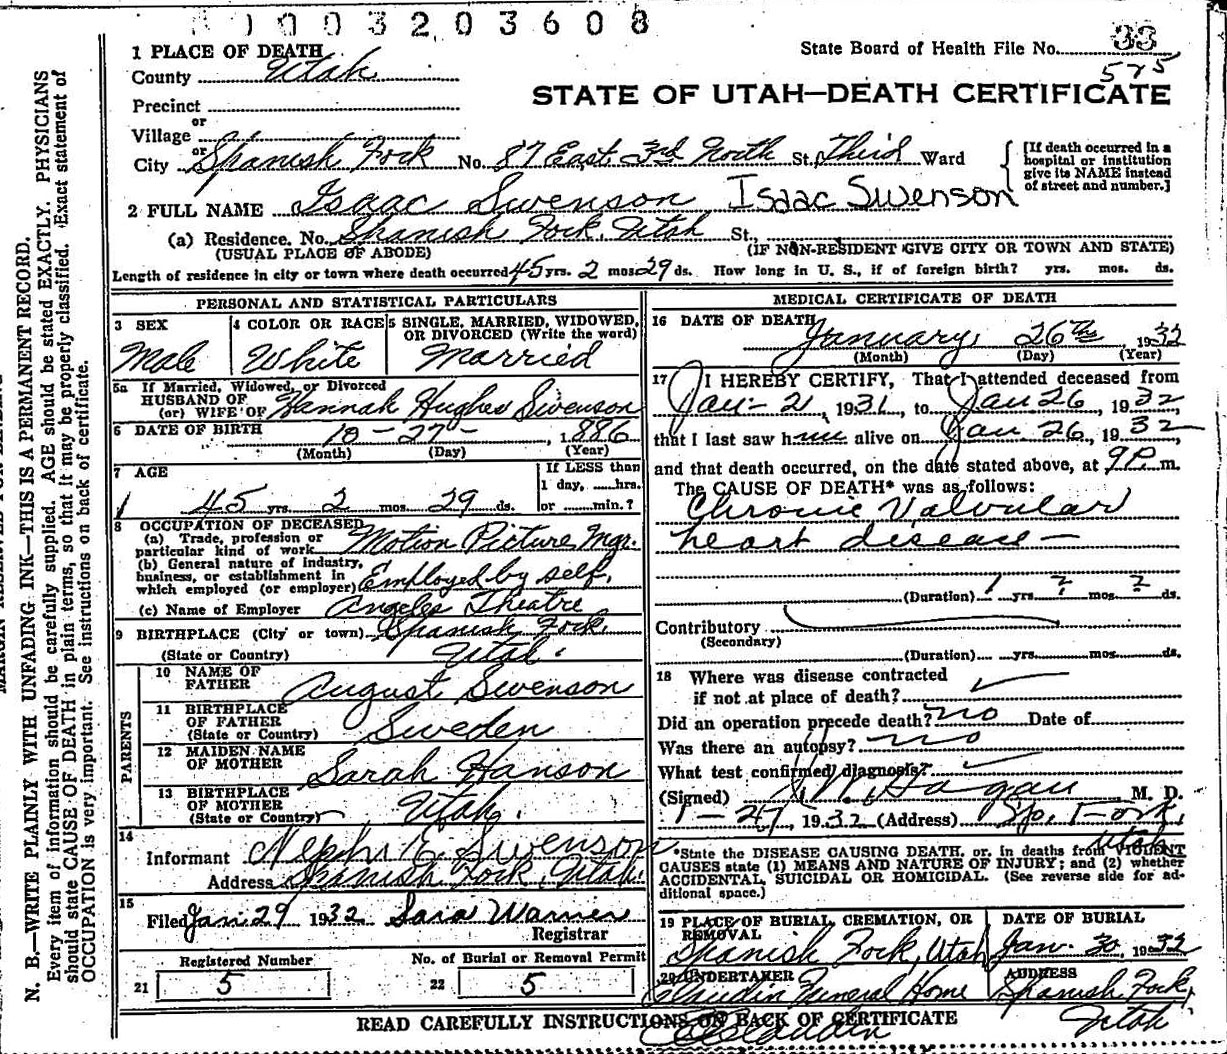 0003203608
State Board of Health File No. 33
575
1 PLACE OF DEATH
County Utah
STATE OF UTAH—DEATH CERTIFICATE
Precinct
or
Village
or
City Spanish Fork No. 87 East 3rd North St. Third Ward
[If death occurred in a hospital or institution give its NAME instead of street and number.]
2 FULL NAME Isaac Swenson Isaac Swenson
(a) Residence. No. Spanish Fork, Utah St.,
(USUAL PLACE OF ABODE) (IF NON-RESIDENT GIVE CITY OR TOWN AND STATE)
Length of residence in city or town where death occurred 45 yrs. 2 mos. 29 ds. How long in U. S., if of foreign birth? yrs. mos. ds.
PERSONAL AND STATISTICAL PARTICULARS
3 SEX
Male
4 COLOR OR RACE
White
5 SINGLE, MARRIED, WIDOWED, OR DIVORCED (Write the word)
Married
5a If Married, Widowed, or Divorced
HUSBAND OF
(or) WIFE OF Hannah Hughes Swenson
6 DATE OF BIRTH 10-27-, 1886
(Month) (Day) (Year)
7 AGE
45 yrs. 2 mos. 29 ds.
If LESS than
1 day, ......hrs.
or ......min.?
8 OCCUPATION OF DECEASED
(a) Trade, profession or
particular kind of work Motion Picture Mgr.
(b) General nature of industry,
business, or establishment in
which employed (or employer) Employed by self,
(c) Name of Employer Angeles Theatre
9 BIRTHPLACE (City or town) Spanish Fork,
(State or Country) Utah.
PARENTS
10 NAME OF FATHER August Swenson
11 BIRTHPLACE OF FATHER
(State or Country) Sweden
12 MAIDEN NAME OF MOTHER Sarah Hanson
13 BIRTHPLACE OF MOTHER
(State or Country) Utah.
14
Informant Nephi E Swenson
Address Spanish Fork, Utah.
15
Filed Jan 29 1932 Sara Warner
Registrar
Registered Number
21 5
No. of Burial or Removal Permit
22 5
MEDICAL CERTIFICATE OF DEATH
16 DATE OF DEATH
January 26th, 1932
(Month) (Day) (Year)
17 I HEREBY CERTIFY, That I attended deceased from
Jan-21, 1931, to Jan 26, 1932,
that I last saw him alive on Jan 26, 1932,
and that death occurred, on the date stated above, at 9P.m.
The CAUSE OF DEATH* was as follows:
Chronic Valvular
heart disease —
(Duration) 1 yrs. ? mos. ? ds.
Contributory
(Secondary)
(Duration) yrs. mos. ds.
18 Where was disease contracted
if not at place of death?
Did an operation precede death? no Date of
Was there an autopsy? no
What test confirmed diagnosis?
(Signed) J.W. Hagan M. D.
1-27, 1932 (Address) Sp. Fork,
Utah
*State the DISEASE CAUSING DEATH, or, in deaths from VIOLENT
CAUSES state (1) MEANS AND NATURE OF INJURY; and (2) whether
ACCIDENTAL, SUICIDAL OR HOMICIDAL. (See reverse side for ad-
ditional space.)
19 PLACE OF BURIAL, CREMATION, OR REMOVAL
Spanish Fork, Utah
DATE OF BURIAL
Jan. 30, 1932
20 UNDERTAKER
Claudin Funeral Home
ADDRESS
Spanish Fork,
Utah
READ CAREFULLY INSTRUCTIONS ON BACK OF CERTIFICATE
N. B.—WRITE PLAINLY WITH UNFADING INK—THIS IS A PERMANENT RECORD.
Every item of information should be carefully supplied. AGE should be stated EXACTLY. PHYSICIANS
should state CAUSE OF DEATH in plain terms, so that it may be properly classified. Exact statement of
OCCUPATION is very important. See instructions on back of certificate.